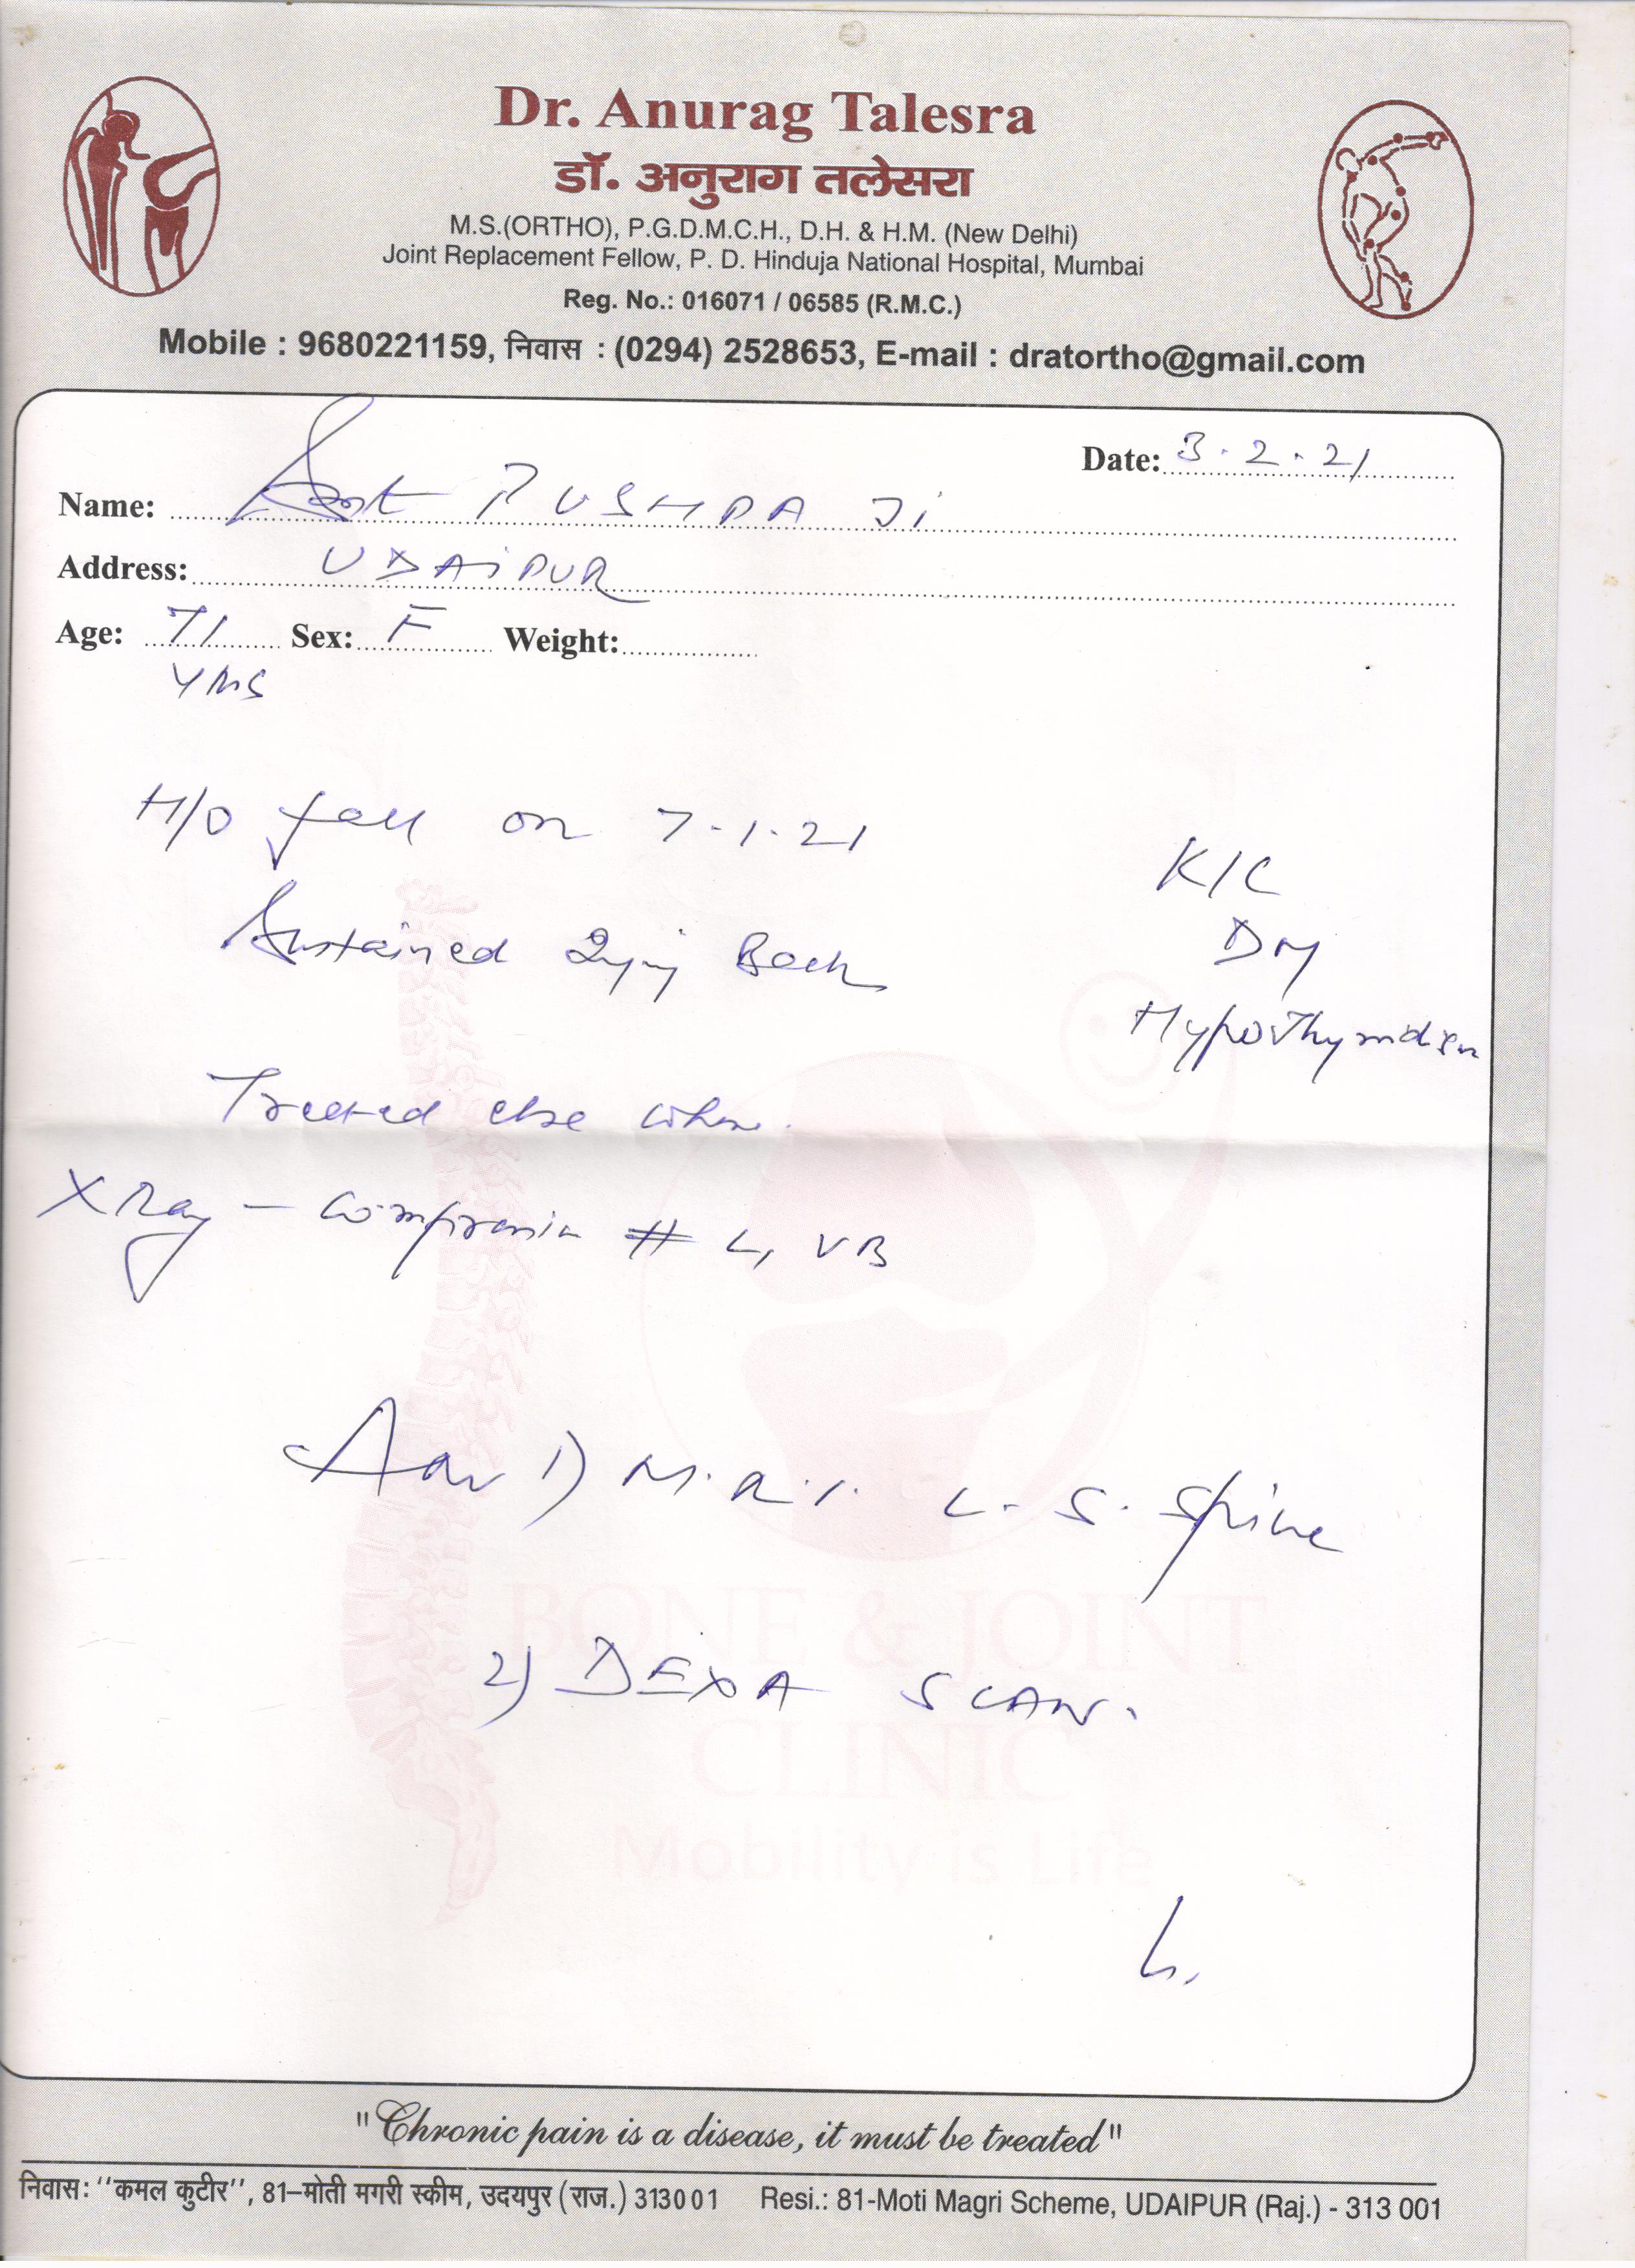 Dr. Anurag Talesra
डॉ. अनुराग तलेसरा
M.S.(ORTHO), P.G.D.M.C.H., D.H. & H.M. (New Delhi)
Joint Replacement Fellow, P. D. Hinduja National Hospital, Mumbai
Reg. No.: 016071 / 06585 (R.M.C.)
Mobile : 9680221159, निवास : (0294) 2528653, E-mail : dratortho@gmail.com
Date: 3.2.21
Name: Smt PUSHPA Ji
Address: UDAiPUR
Age: 71 Sex: F Weight:
YRS
H/O fall on 7.1.21
K/C
Sustained Injury Back
DM
Hypothyroidism
Treated else where.
X Ray - Compression # L1 VB
Adv 1) M.R.I. L.S. Spine
BONE & JOINT
2) DEXA SCAN.
CLINIC
Mobility is Life
"Chronic pain is a disease, it must be treated"
निवास: ''कमल कुटीर'', 81–मोती मगरी स्कीम, उदयपुर (राज.) 313001 Resi.: 81-Moti Magri Scheme, UDAIPUR (Raj.) - 313 001